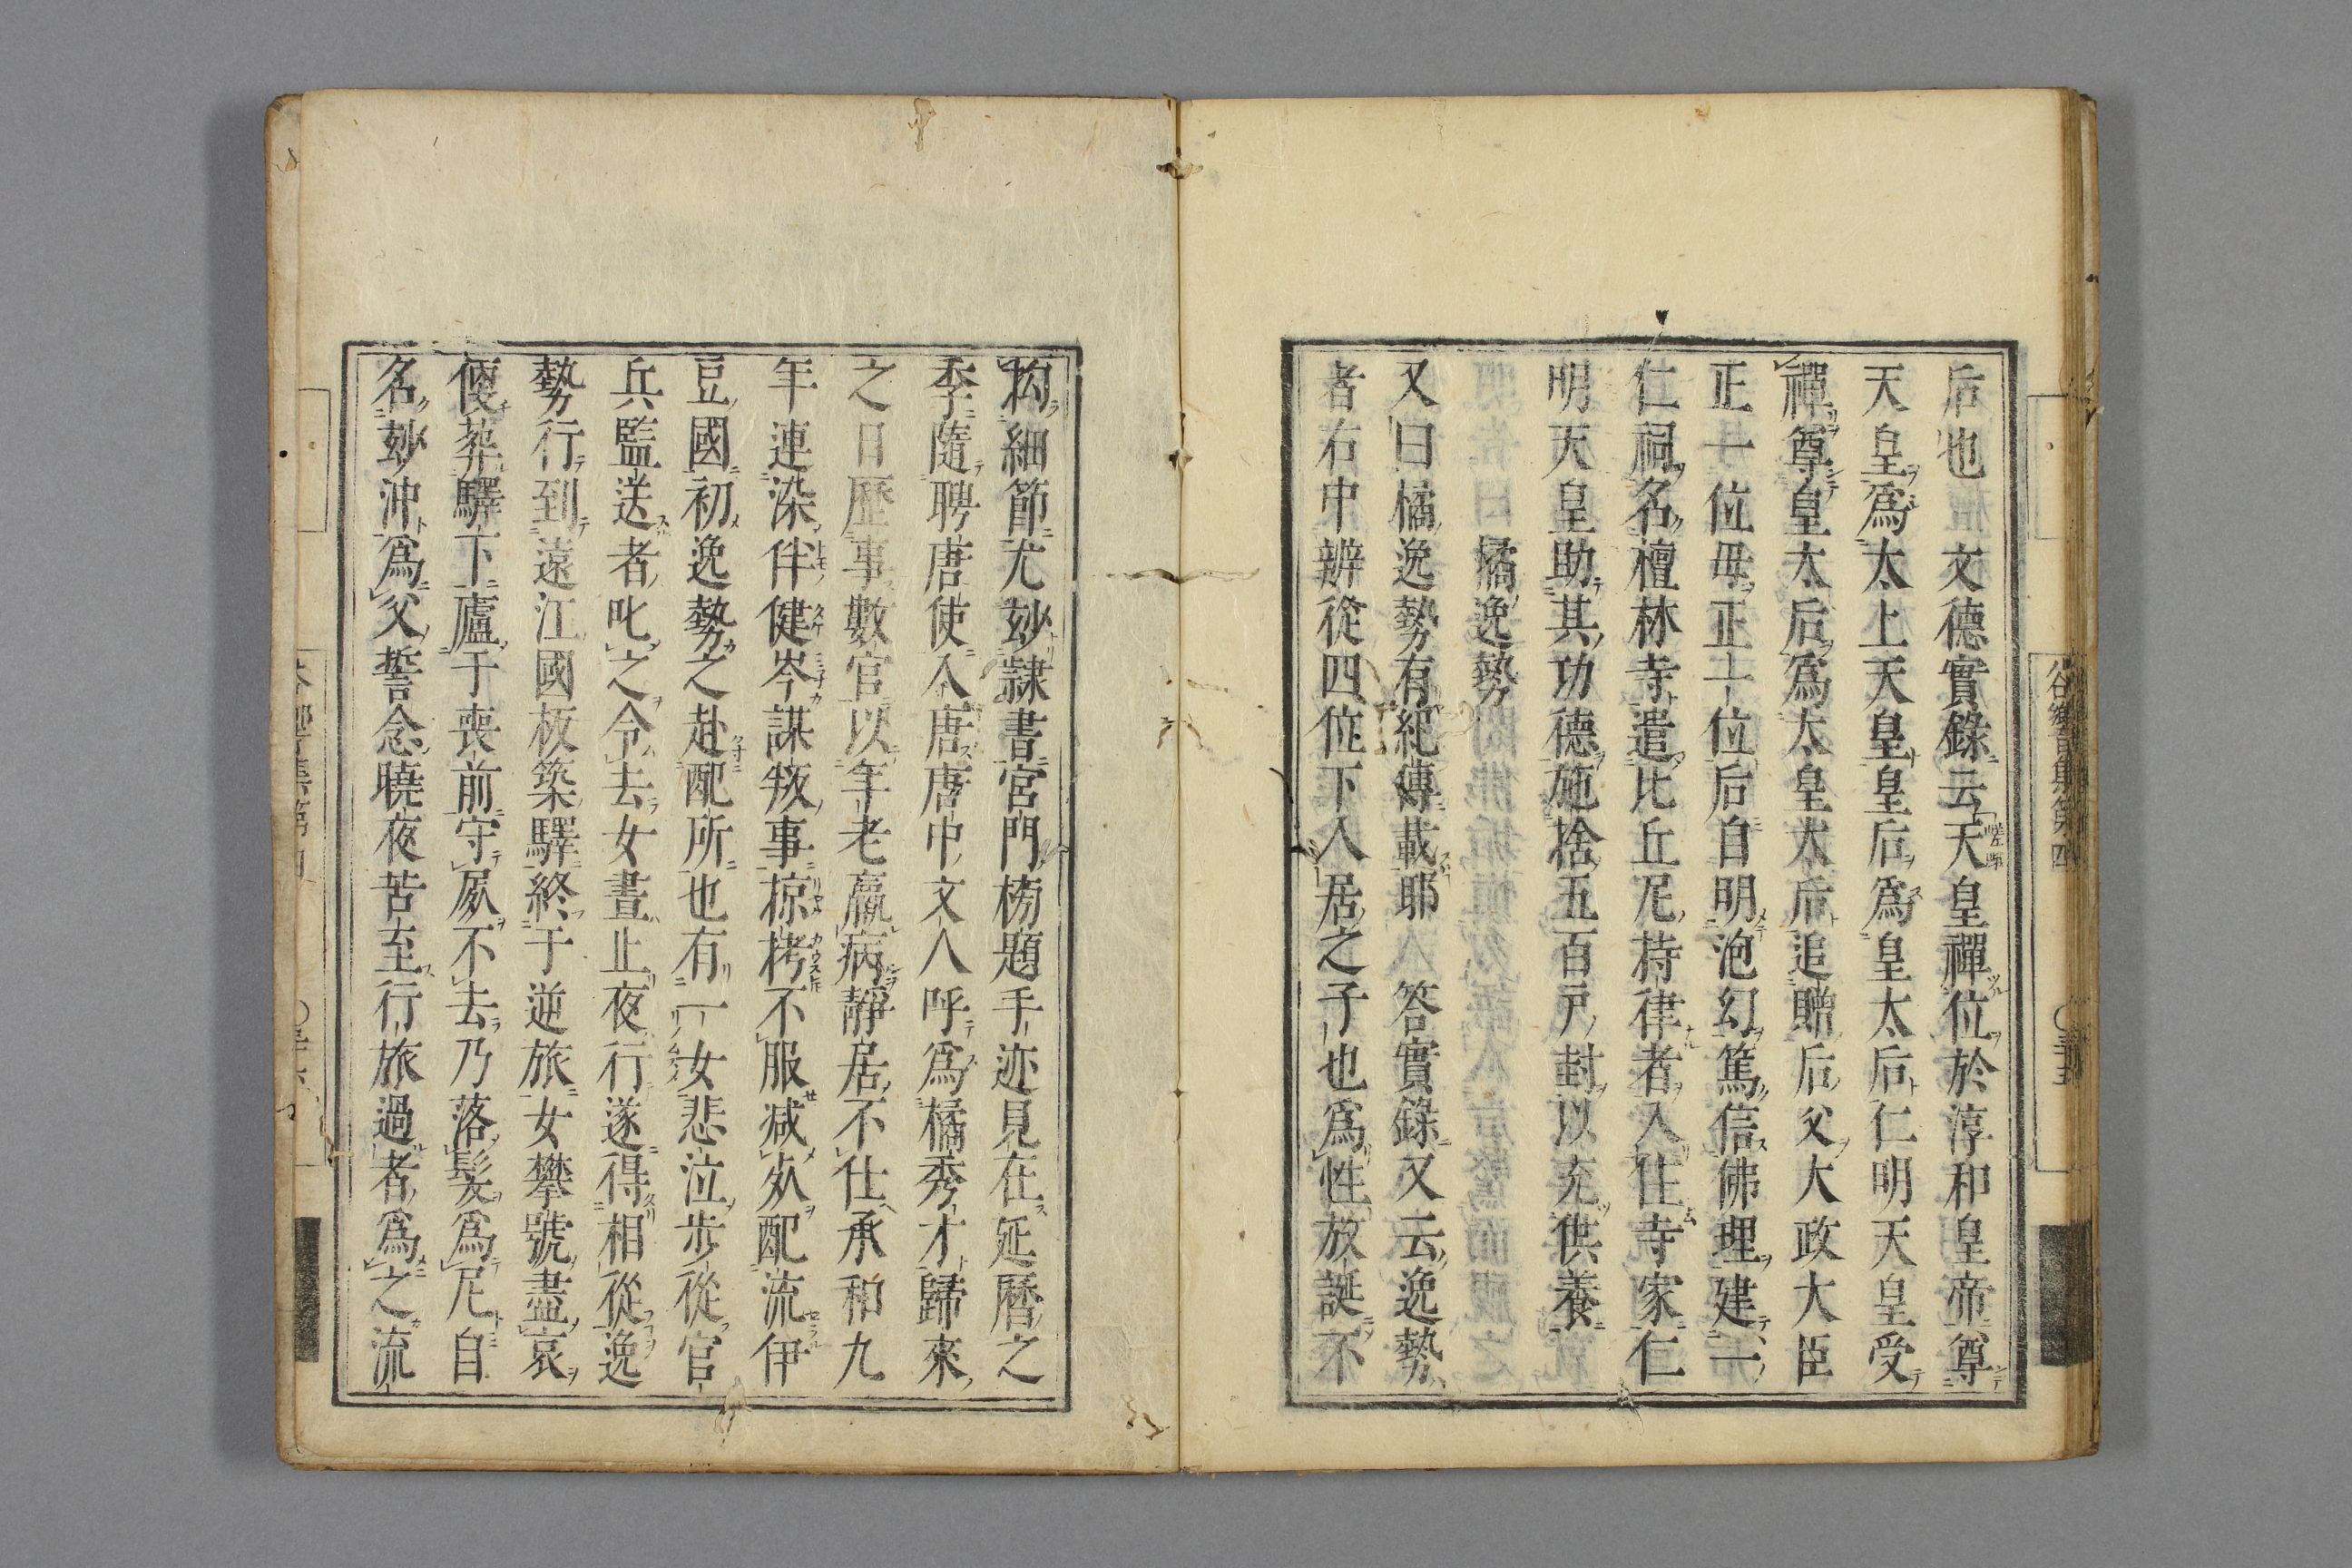 后也　文德實錄云天皇禪位於淳和皇帝尊
天皇爲太上天皇皇后爲皇太后仁明天皇受
禪尊皇太后爲太皇太后追贈后父大政大臣
正一位母正一位后自明泡幻篤信佛理建一
仁祠名檀林寺遣比丘尼持律者入住寺家仁
明天皇助其功德施捨五百戸封以充供養
橘逸勢
又曰橘逸勢有紀傳載耶　答實錄又云逸勢
者右中辨從四位下入居之子也爲性放誕不
拘細節尤玅隷書宮門榜題手迹見在延曆之
季隨聘唐使入唐唐中文人呼爲橘秀才歸來
之日歷事數官以年老羸病靜居不仕承和九
年連染伴健岑謀叛事掠栲不服减死配流伊
豆國初逸勢之赴配所也有一女悲泣歩從官
兵監送者叱之令去女晝止夜行遂得相從逸
勢行到遠江國板築驛終于逆旅女攀號盡哀
便葬驛下廬于喪前守屍不去乃落髮爲尼自
名玅沖爲父誓念曉夜苦至行旅過者爲之流
谷響集第四　〇三十五